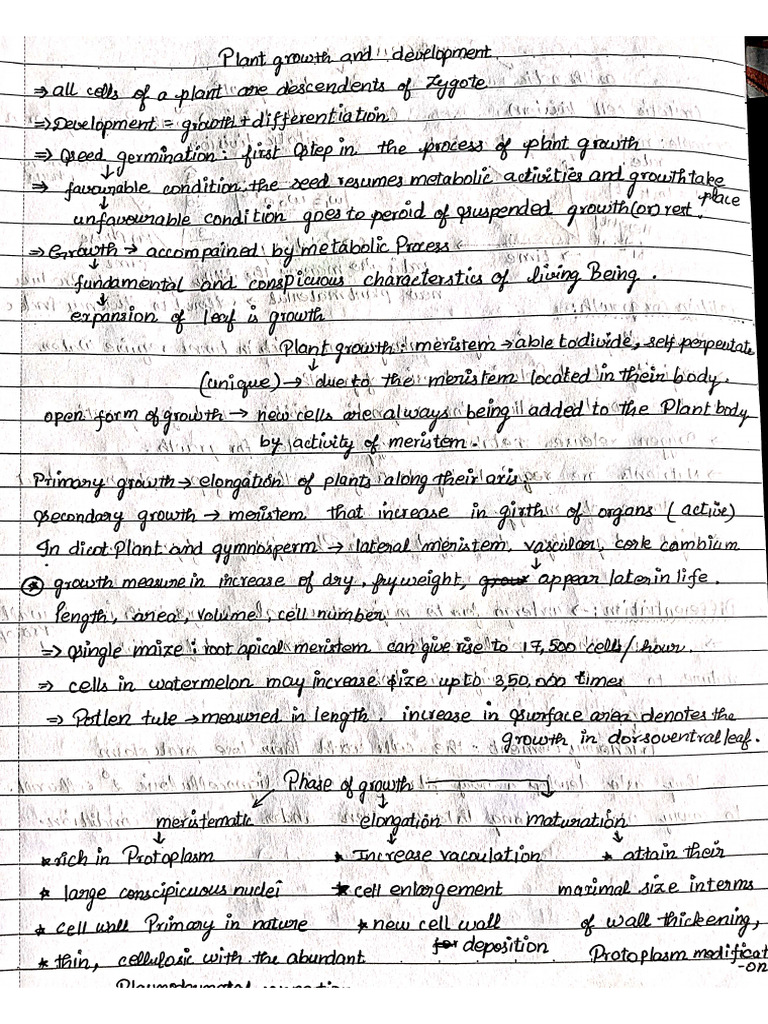 Plant growth and development
⇒ all cells of a plant are descendents of Zygote
⇒ Development = growth + differentiation
⇒ Seed germination : first step in the process of plant growth
⇒ favourable condition the seed resumes metabolic activities and growth take place
unfavourable condition goes to peroid of suspended growth (or) rest.
⇒ Growth → accompained by metabolic Process
fundamental and conspicuous characterstics of living Being.
expansion of leaf is growth
Plant growth : meristem → able to divide, self perpeutate
(unique) → due to the meristem located in their body.
open form of growth → new cells are always being added to the Plant body
by activity of meristem.
Primary growth → elongation of plants along their axis
Secondary growth → meristem that increase in girth of organs (active)
In dicot Plant and gymnosperm → lateral meristem, vascular, cork cambium
* growth measure in increase of dry, fry weight, appear later in life.
length, area, volume, cell number
⇒ single maize : root apical meristem can give rise to 17,500 cells/hour.
⇒ cells in watermelon may increase size upto 3,50,000 times
⇒ Pollen tule → measured in length. increase in surface area denotes the
growth in dorsoventral leaf.
Phase of growth
meristematic elongation maturation
* rich in Protoplasm * Increase vacoulation * attain their
* large conscipicuous nuclei * cell enlargement maximal size interms
* cell wall Primary in nature * new cell wall of wall thickening,
* thin, cellulosic with the abundant deposition Protoplasm modificat-on